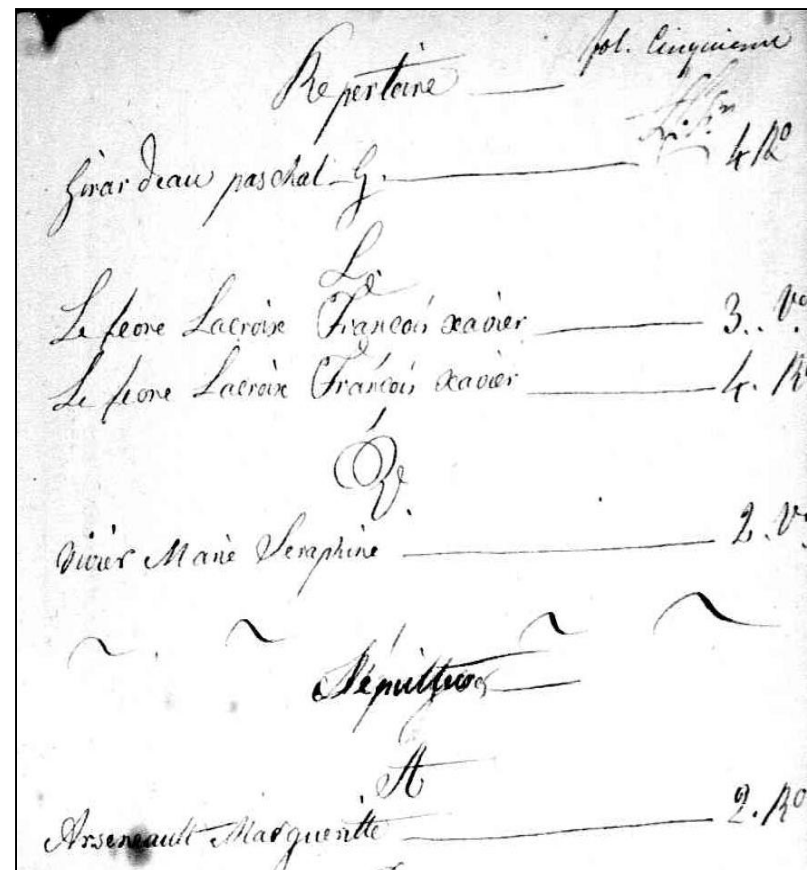 fol. Cinquieme
Repertoire
Girardeau paschal G. 4 Ro
L.
Lefevre Lacroix François xavier 3.. Vo.
Lefevre Lacroix François xavier 4. Ro
V.
Vivier Marie Seraphine 2. Vo.
Sépultures
A
Arseneault Margueritte 2. Ro